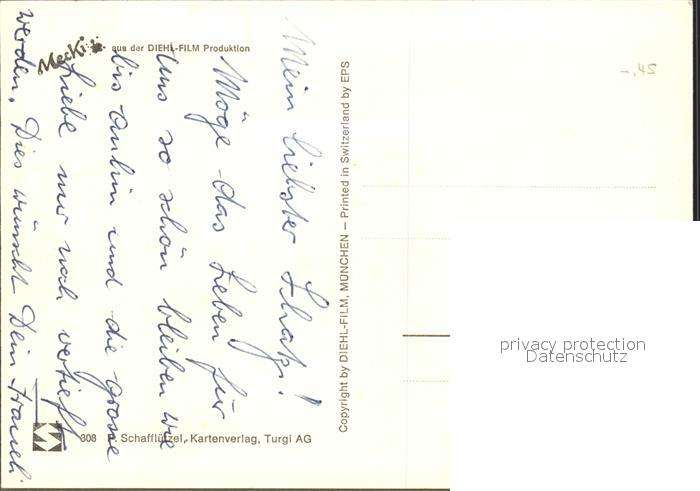 Mecki
aus der DIEHL-FILM Produktion
Mein liebster Schatz!
Möge das Leben für
uns so schön bleiben wie
bis anhin und die grosse
Liebe nur noch vertieft
werden. Dies wünscht Dein
Copyright by DIEHL-FILM, MÜNCHEN — Printed in Switzerland by EPS
-.45
privacy protection
Datenschutz
808
Schafflützel, Kartenverlag, Turgi AG